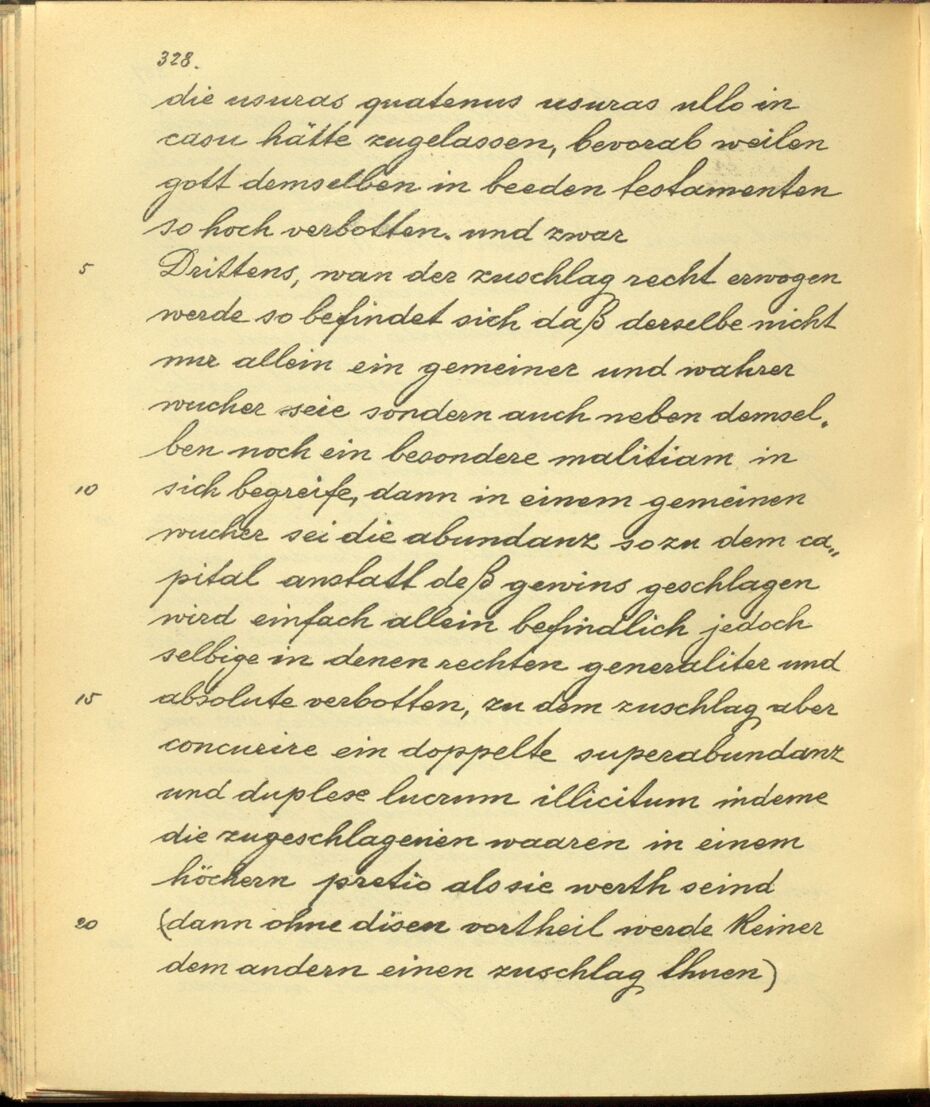 328.
die usuras quatenus usuras ullo in
casu hätte zugelassen, bevorab weilen
gott demselben in beeden testamenten
so hoch verbotten. und zwar
5 Drittens, wan der zuschlag recht erwogen
werde so befindet sich daß derselbe nicht
nur allein ein gemeiner und wahrer
wucher seie sondern auch neben demsel„
ben noch ein besondere malitiam in
10 sich begreife, dann in einem gemeinen
wucher sei die abundanz so zu dem ca„
pital anstatt deß gewins geschlagen
wird einfach allein befindlich jedoch
selbige in denen rechten generaliter und
15 absolute verbotten, zu dem zuschlag aber
concurire ein doppelte superabundanz
und duplex lucrum illicitum indeme
die zugeschlagenen waaren in einem
höchern pretio als sie werth seind
20 (dann ohne disen vortheil werde keiner
dem andern einen zuschlag thuen)